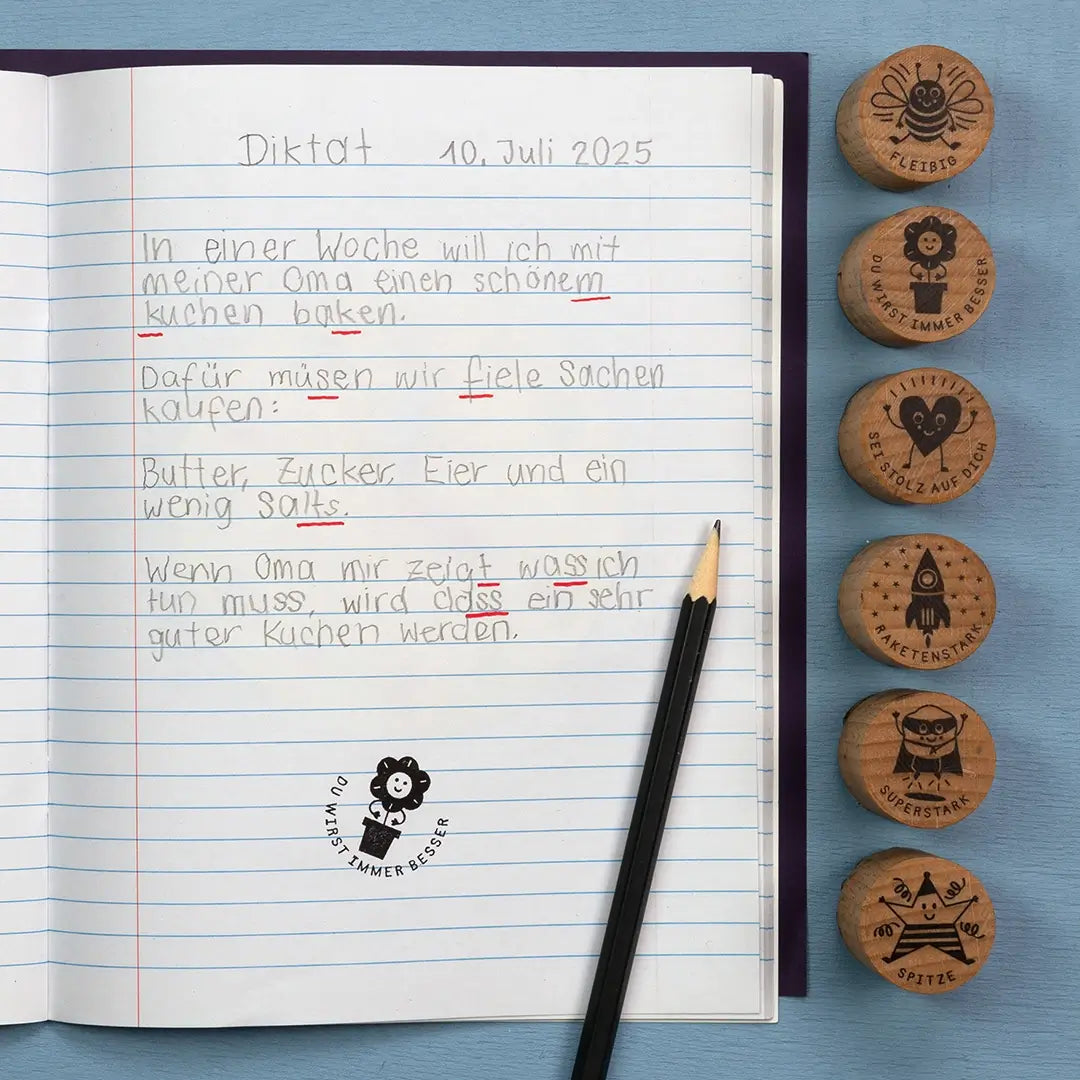 Diktat 10. Juli 2025
In einer Woche will ich mit
meiner Oma einen schönem
kuchen baken.
Dafür müsen wir fiele Sachen
kaufen:
Butter, Zucker, Eier und ein
wenig Salts.
Wenn Oma mir zeigt wass ich
tun muss, wird dass ein sehr
guter Kuchen werden.
DU WIRST IMMER BESSER
FLEIßIG
DU WIRST IMMER BESSER
SEI STOLZ AUF DICH
RAKETENSTARK
SUPERSTARK
SPITZE